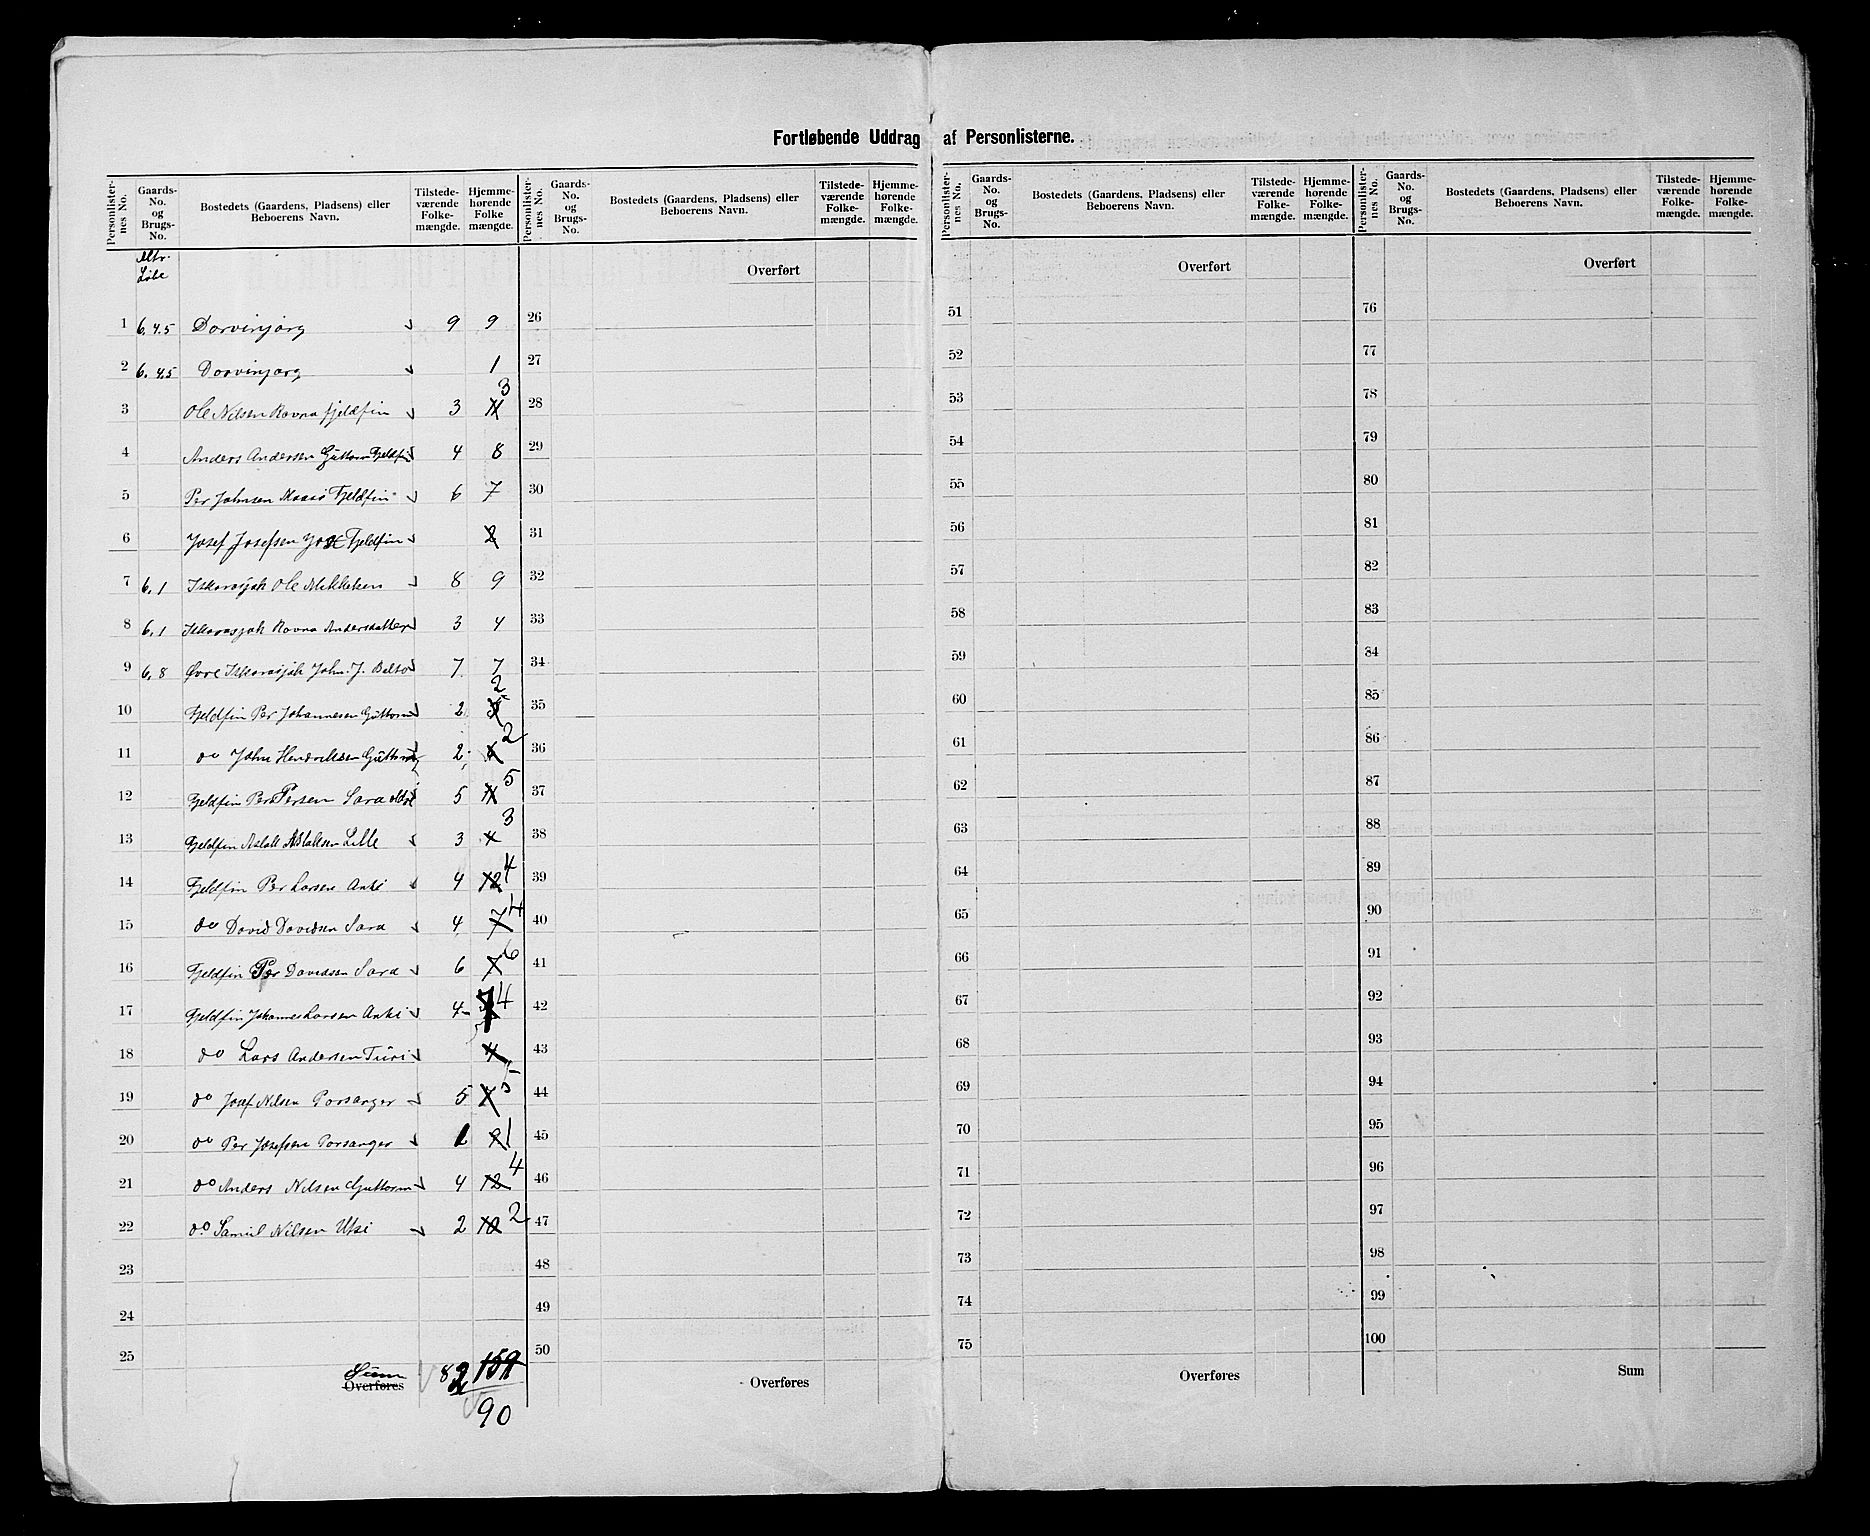 Fortløbende Uddrag af Personlisterne.
Personlisternes No. Gaards-No. og Brugs-No. Bostedets (Gaardens, Pladsens) eller Beboerens Navn. Tilstedeværende Folkemængde. Hjemmehørende Folkemængde.
Mtr. Løbe
1 6.4.5 Dorvinjarg 9 9
2 6.4.5 Dorvinjarg 1
3 Ole Nilsen Ravna fjeldfin 3 11 3
4 Anders Andersen Guttorm Fjeldfin 4 8
5 Per Johnsen Fjeldfin 6 7
6 Josef Josefsen Fjeldfin 2
7 6.1 Iskorasjok Ole Mikkelsen 8 9
8 6.1 Iskorasjok Ravna Andersdatter 3 4
9 6.8 Øvre Iskorasjok John. J. Balto 7 7
10 Fjeldfin Per Johannesen Guttorm 2 2
11 do John Hendriksen Guttorm 2 2
12 Fjeldfin Per Persen Sara ældre 5 11 5
13 Fjeldfin Aslak Aslaksen Lille 3 3
14 Fjeldfin Per Larsen Anti 4 12 4
15 do David Davidsen Sara 4 7 4
16 Fjeldfin Per Davidsen Sara 6 7 6
17 Fjeldfin Johannes Larsen Anti 4 7 4
18 do Lars Andersen Turi 4
19 do Josef Nilsen Porsanger 5 7 5
20 do Per Josefsen Porsanger 1 2 1
21 do Anders Nilsen Guttorm 4 12 4
22 do Samul Nilsen Utsi 2 10 2
23
24
25
Sum
Overføres 82 159
90
Personlisternes No. Gaards-No. og Brugs-No. Bostedets (Gaardens, Pladsens) eller Beboerens Navn. Tilstedeværende Folkemængde. Hjemmehørende Folkemængde.
Overført
26
27
28
29
30
31
32
33
34
35
36
37
38
39
40
41
42
43
44
45
46
47
48
49
50
Overføres
Personlisternes No. Gaards-No. og Brugs-No. Bostedets (Gaardens, Pladsens) eller Beboerens Navn. Tilstedeværende Folkemængde. Hjemmehørende Folkemængde.
Overført
51
52
53
54
55
56
57
58
59
60
61
62
63
64
65
66
67
68
69
70
71
72
73
74
75
Overføres
Personlisternes No. Gaards-No. og Brugs-No. Bostedets (Gaardens, Pladsens) eller Beboerens Navn. Tilstedeværende Folkemængde. Hjemmehørende Folkemængde.
Overført
76
77
78
79
80
81
82
83
84
85
86
87
88
89
90
91
92
93
94
95
96
97
98
99
100
Sum